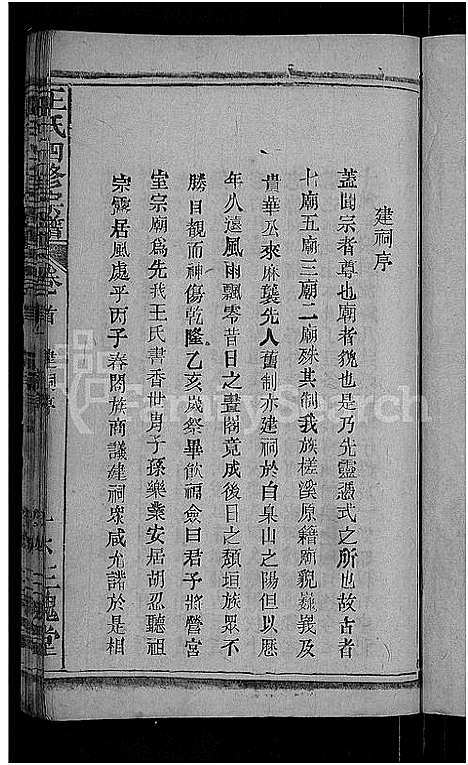 建祠序
蓋聞宗者尊也廟者貌也是乃先靈憑式之所也故古者
七廟五廟三廟二廟殊其制我族槎溪原籍廟貌巍義及
貴華丞來麻襲先人舊制亦建祠於白泉山之陽但以歷
年久遠風雨飄零昔日之畫閣竟成後日之頹垣族眾不
勝目觀而神傷乾隆乙亥歲祭畢飲福僉曰君子將營宮
室宗廟為先我王氏書香世冑子孫樂業安居胡忍聽祖
宗露居風處乎丙子春閤族商議建祠眾咸允諾於是相
王氏四修宗譜 卷首 建祠序 三槐堂
FamilySearch